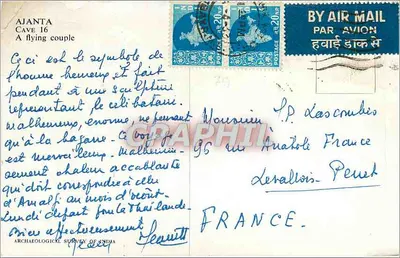 AJANTA
CAVE 16
A flying couple
Ceci est le symbole de
l'homme heureux et fait
pendant à une sculpture
représentant le célibataire
malheureux, énorme, ne pensant
qu'à la Ce voyage
est merveilleux. Malheureu-
sement chaleur accablante
qui doit correspondre à celle
d'Amalfi au mois d'août.
Lundi départ pour la Thaïlande.
Bien affectueusement
Jean Jeannette
ARCHAEOLOGICAL SURVEY OF INDIA
BY AIR MAIL
PAR AVION
हवाई डाक से
Monsieur J.P. Lascombes
96 rue Anatole France
Levallois-Perret
FRANCE.
GRAPHTIL